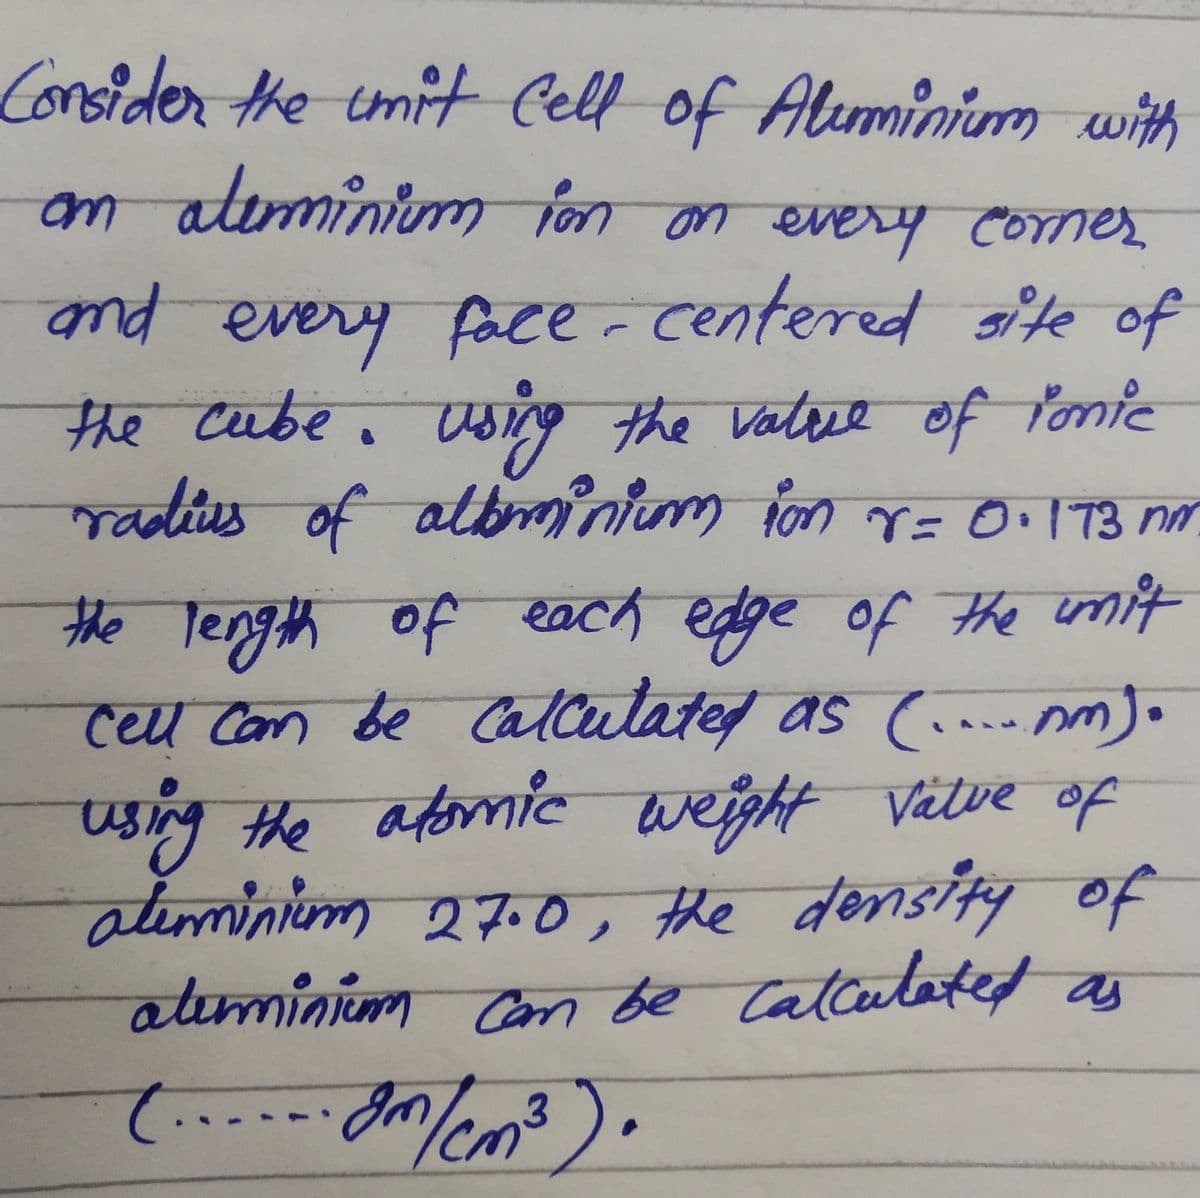 Consider the unit Cell of Aluminium with
an aluminium ion on every corner
and every face-centered site of
the cube. using the value of ionic
radius of alluminium ion r= 0.173 nm
the length of each edge of the unit
cell can be calculated as (.....nm).
using the atomic weight value of
aluminium 27.0, the density of
aluminium can be calculated as
(.......gm/cm³).